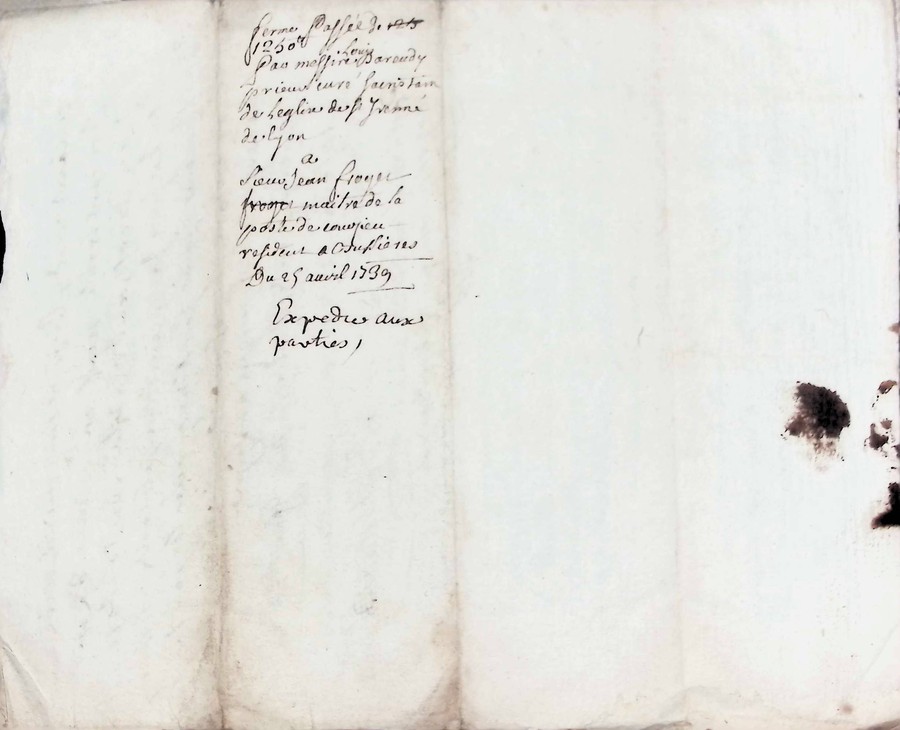 ferme Passée de 125
1250ᵗᵗ
Par messire Louis Barendy
prieur curé Sacristain
de Leglise de St Irenné
de Lyon
a
Sieur Jean froget
froget maitre de la
poste de
resident a
Du 25 avril 1739
Expediée aux
parties,